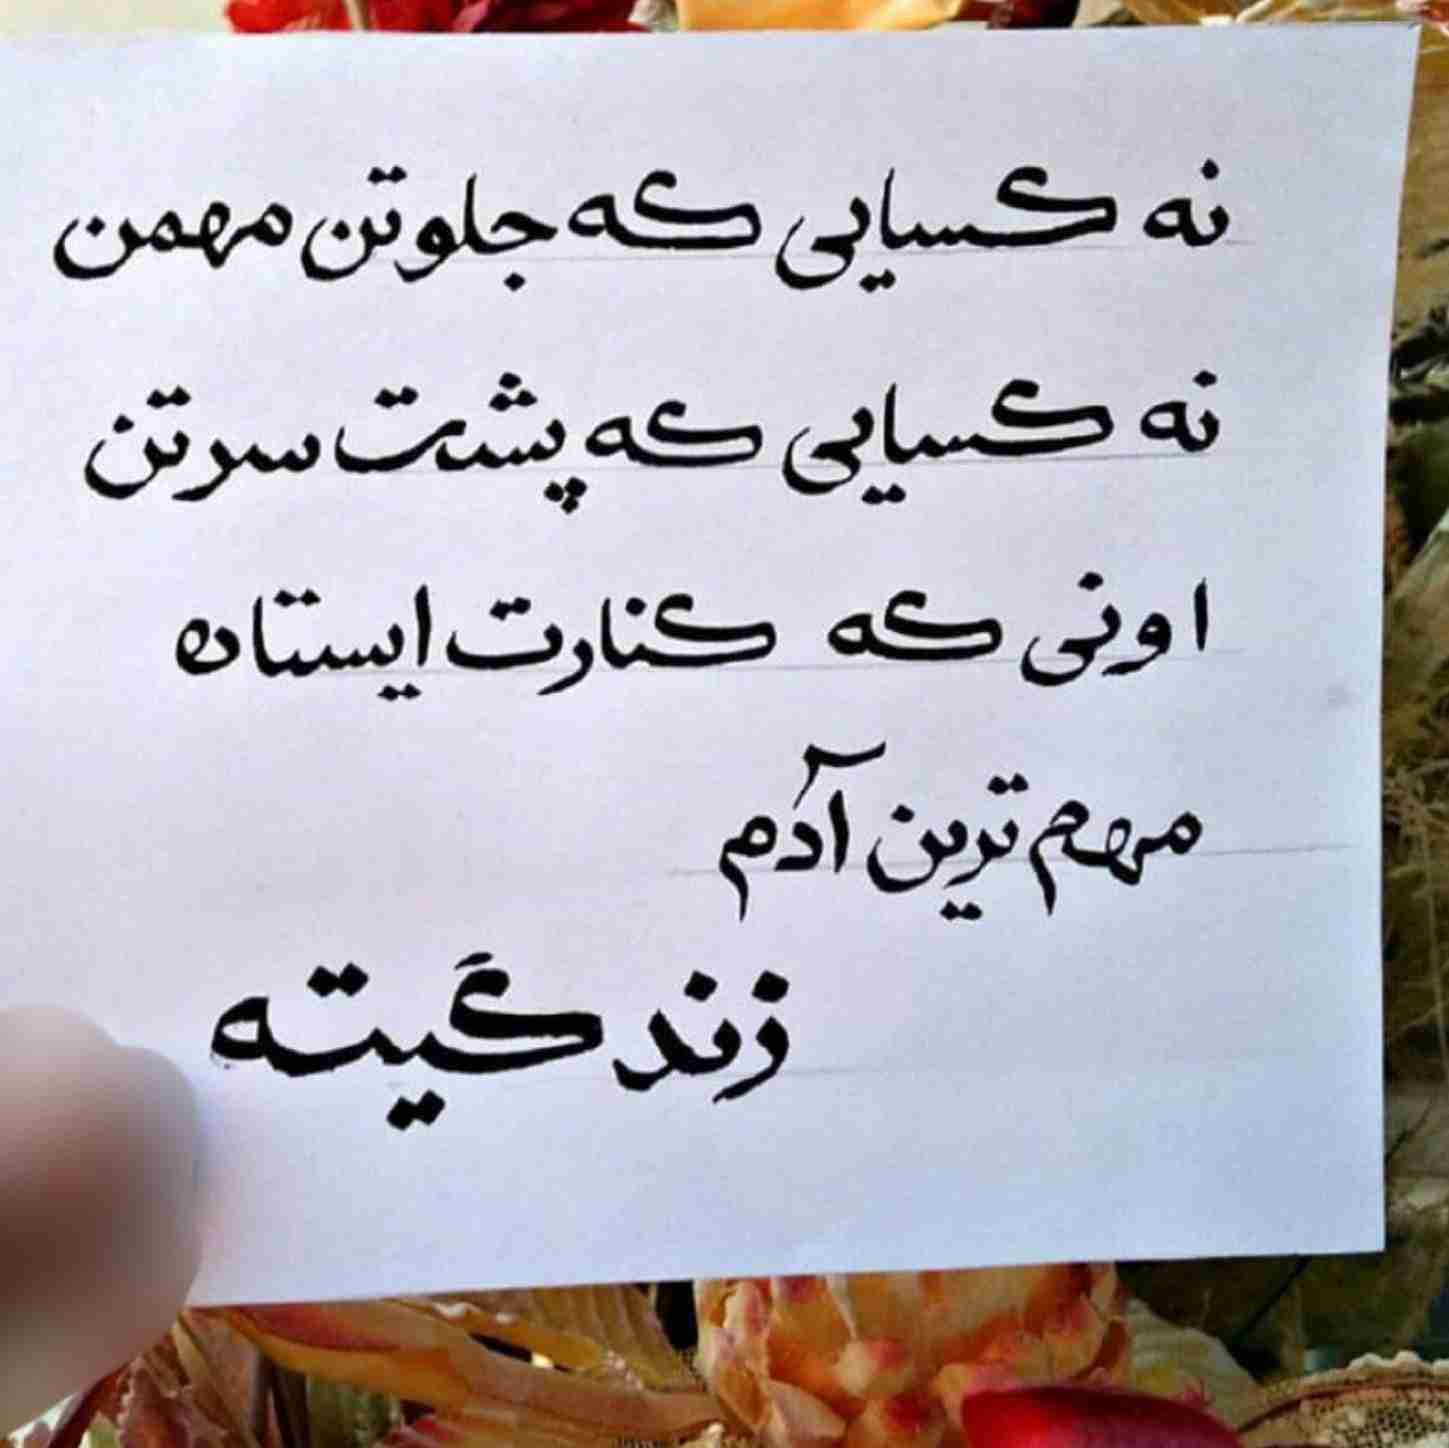 نه کسایی که جلوتن مهمن
نه کسایی که پشت سرتن
اونی که کنارت ایستاده
مهم ترین آدم
زندگیته